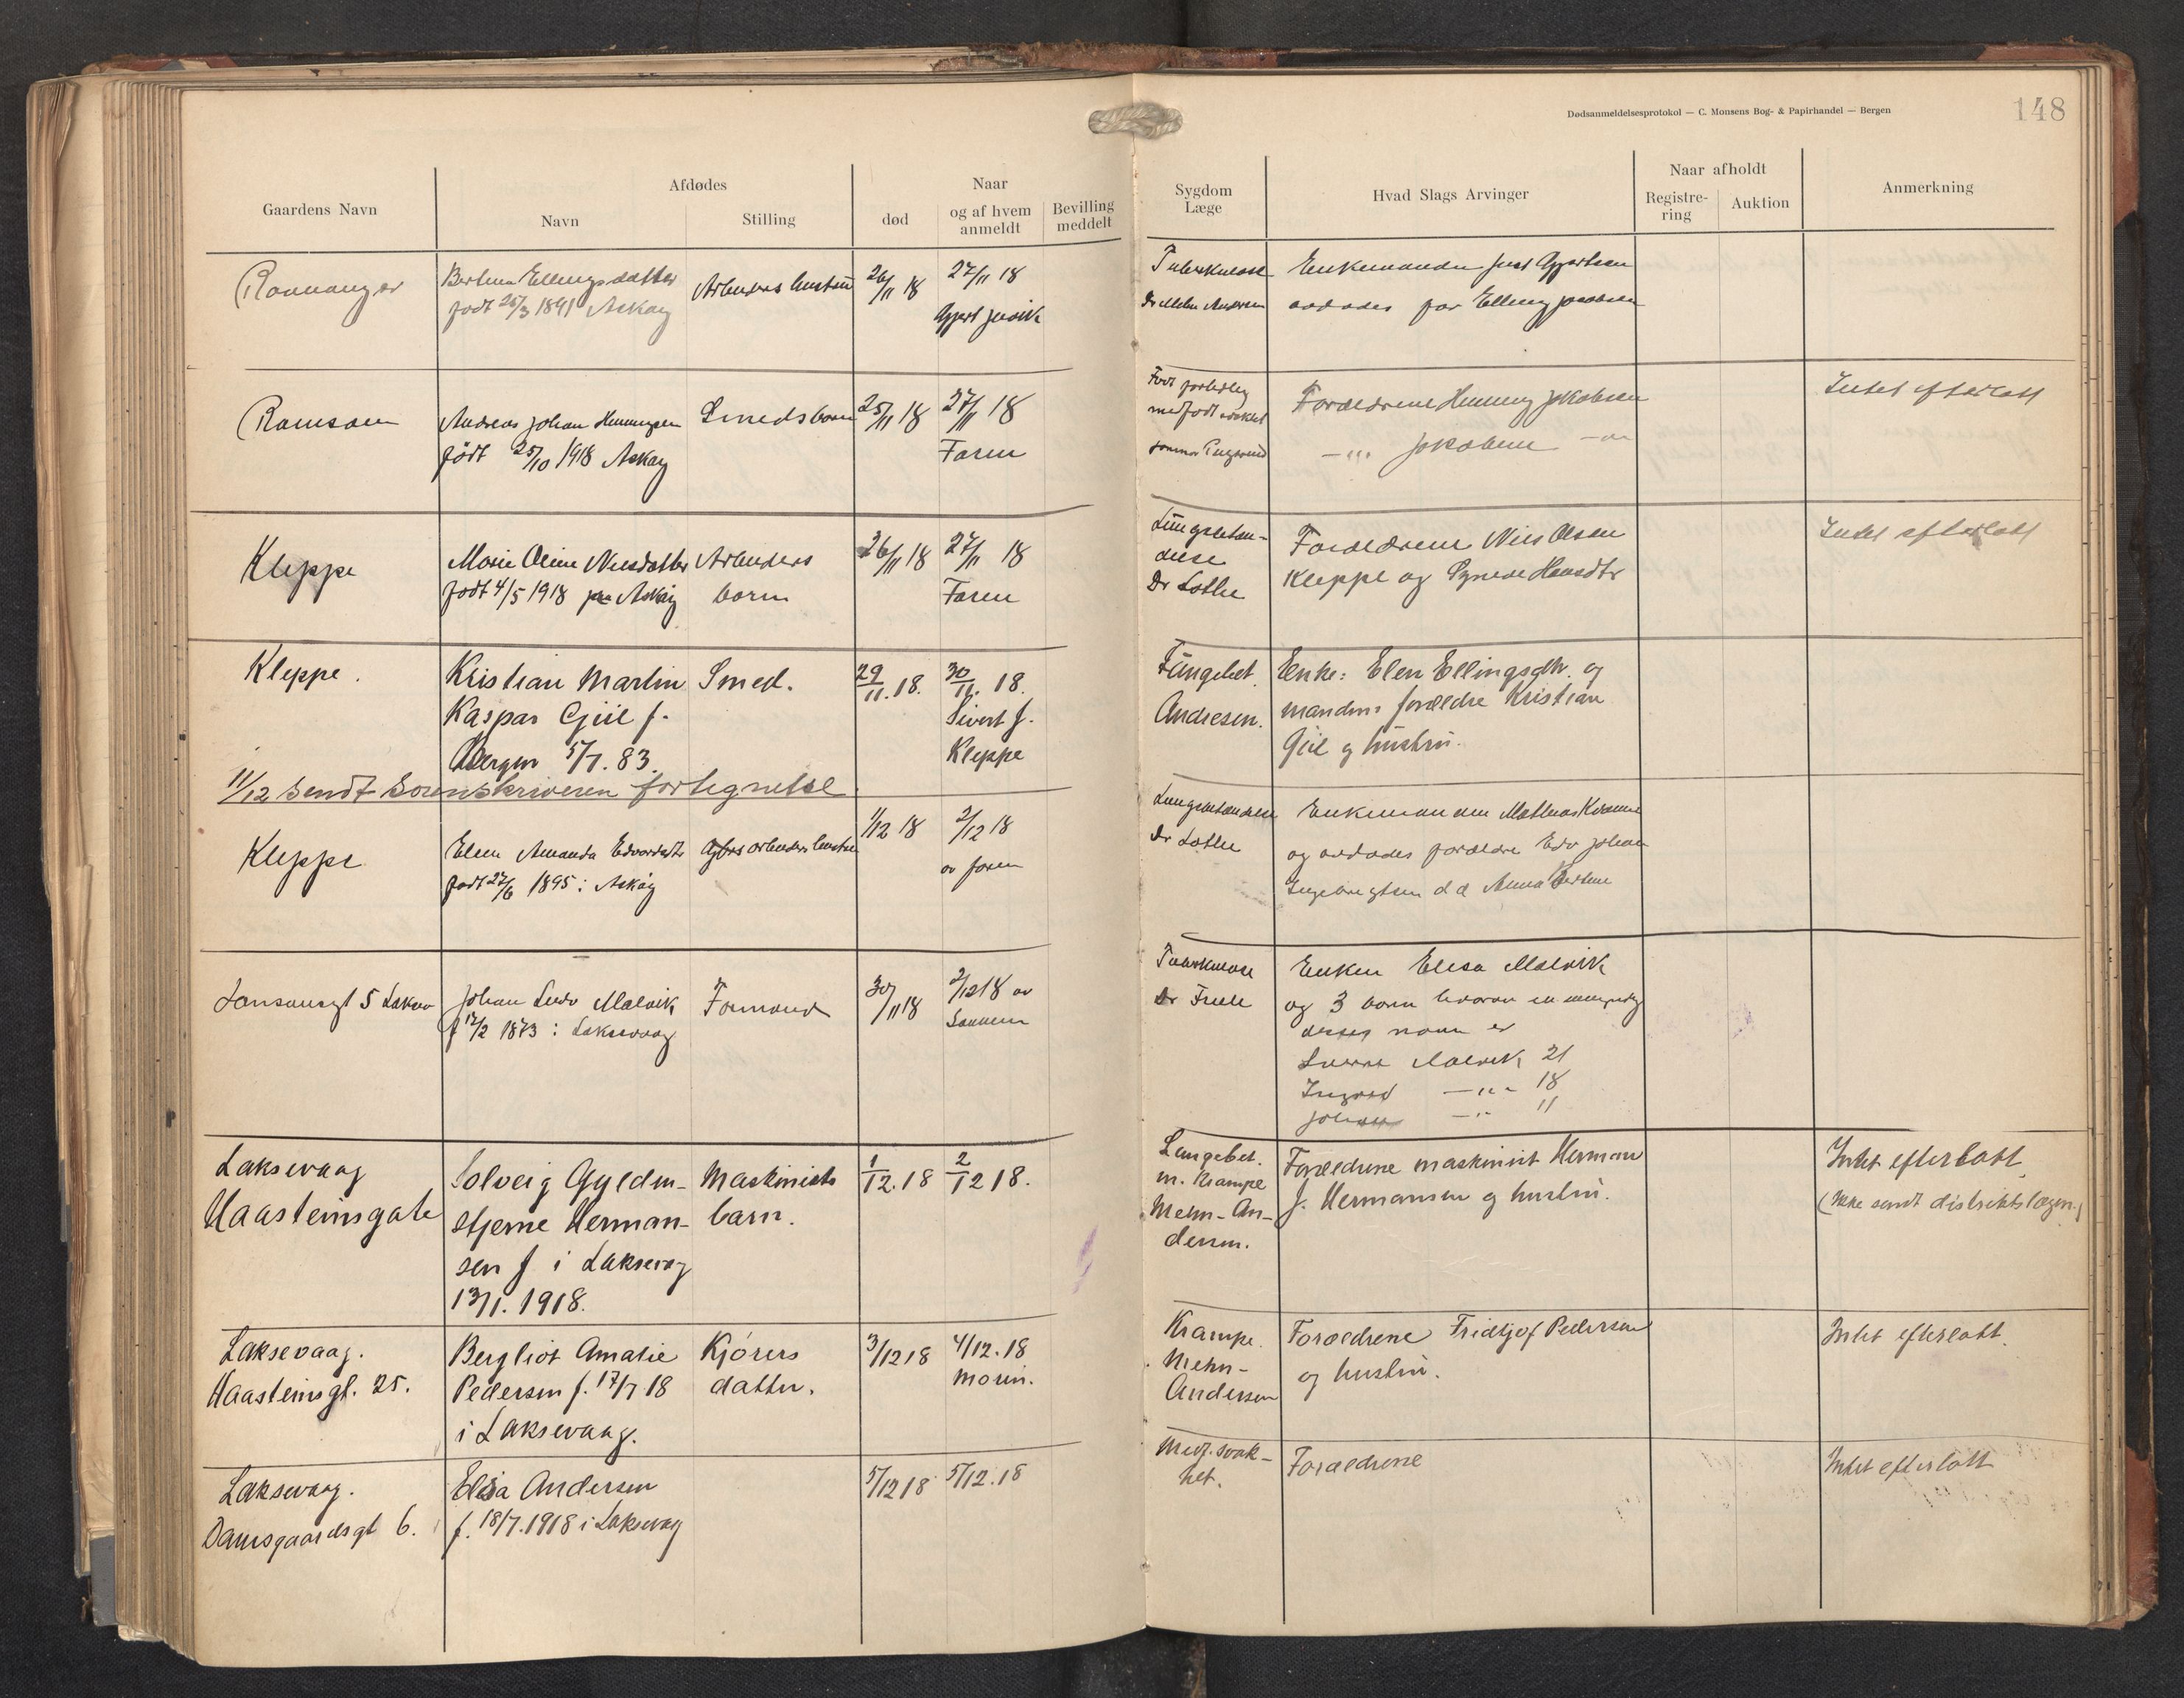 Dødsanmeldelsesprotokol — C. Monsens Bog- & Papirhandel — Bergen
148
Gaardens Navn
Afdødes
Navn
Stilling
død
Naar
og af hvem
anmeldt
Bevilling
meddelt
Sygdom
Læge
Hvad Slags Arvinger
Naar afholdt
Registre-
ring
Auktion
Anmerkning
Ellingsdatter
født 25/3 1891 Askøy
Arbeiders hustru
26/11 18
27/11 18
Tuberkulose
Enkemanden
avdødes far Elling Jacobsen
Ramsøen
Andreas Johan Henningsen
født 25/10 1918 Askøy
Smedsbarn
25/11 18
27/11 18
Faren
Født
Forældrene Henning Jakobsen
—"— Jakobine
Intet efterlatt
Kleppe
Marie Oline Nilsdatter
født 4/5 1918 Askøy
Arbeiders
barn
26/11 18
27/11 18
Faren
Lungebetæn-
delse
Dr Lothe
Forældrene Nils Olsen
Kleppe og Synneve Hansdtr
Intet efterlatt
Kleppe.
Kristian Martin
Kaspar Giil f.
Bergen 5/7. 83.
Smed.
29/11. 18.
30/11. 18.
Sivert J.
Kleppe
Lungebet.
Andresen.
Enke: Elen Ellingsdtr. og
mandens forældre Kristian
Giil og hustru.
11/12 sendt Sorenskriveren fortegnelse
Kleppe
Amanda Edvardsdtr
født 27/6 1895 i Askøy
arbeiders hustru
1/12 18
2/12 18
av faren
Lungebetændelse
Dr Lothe
Enkemanden Mathias
og avdødes forældre Edv Johan
Ingebregtsen og Anna Bertine
5 Laksev
Johan Ludv Malvik
f 12/2 1873 i Laksevaag
Formand
30/11 18
2/12 18 av
Sønnen
Tuberkulose
Dr
Enken Elisa Malvik
og 3 barn hvorav en umyndig
disses navn er
Sverre Malvik 21
Ingrid —"— 18
Johan —"— 11
Laksevaag
Haasteinsgate
Solveig Gylden-
stjerne Herman-
sen f i Laksevaag
13/1. 1918.
Maskinists
barn.
1/12. 18
2/12 18.
Lungebet.
m. Krampe
Mehn-An-
dersen.
Forældrene maskinist Herman
J. Hermansen og hustru.
Intet efterlatt.
(Ikke sendt distriktslægen)
Laksevaag.
Haasteinsgt. 25.
Bergliot Amalie
Pedersen f. 17/7 18
i Laksevaag.
Kjørers
datter.
3/12 18
4/12. 18
Moren.
Krampe.
Mehn-
Andersen
Forældrene Fridtjof Pedersen
og hustru.
Intet efterlatt.
Laksevaag.
Damsgaardsgt 6.
Elisa Andersen
f. 18/7. 1918 i Laksevaag
5/12 18
5/12. 18
Medf. svak-
het.
Forældrene
Intet efterlatt